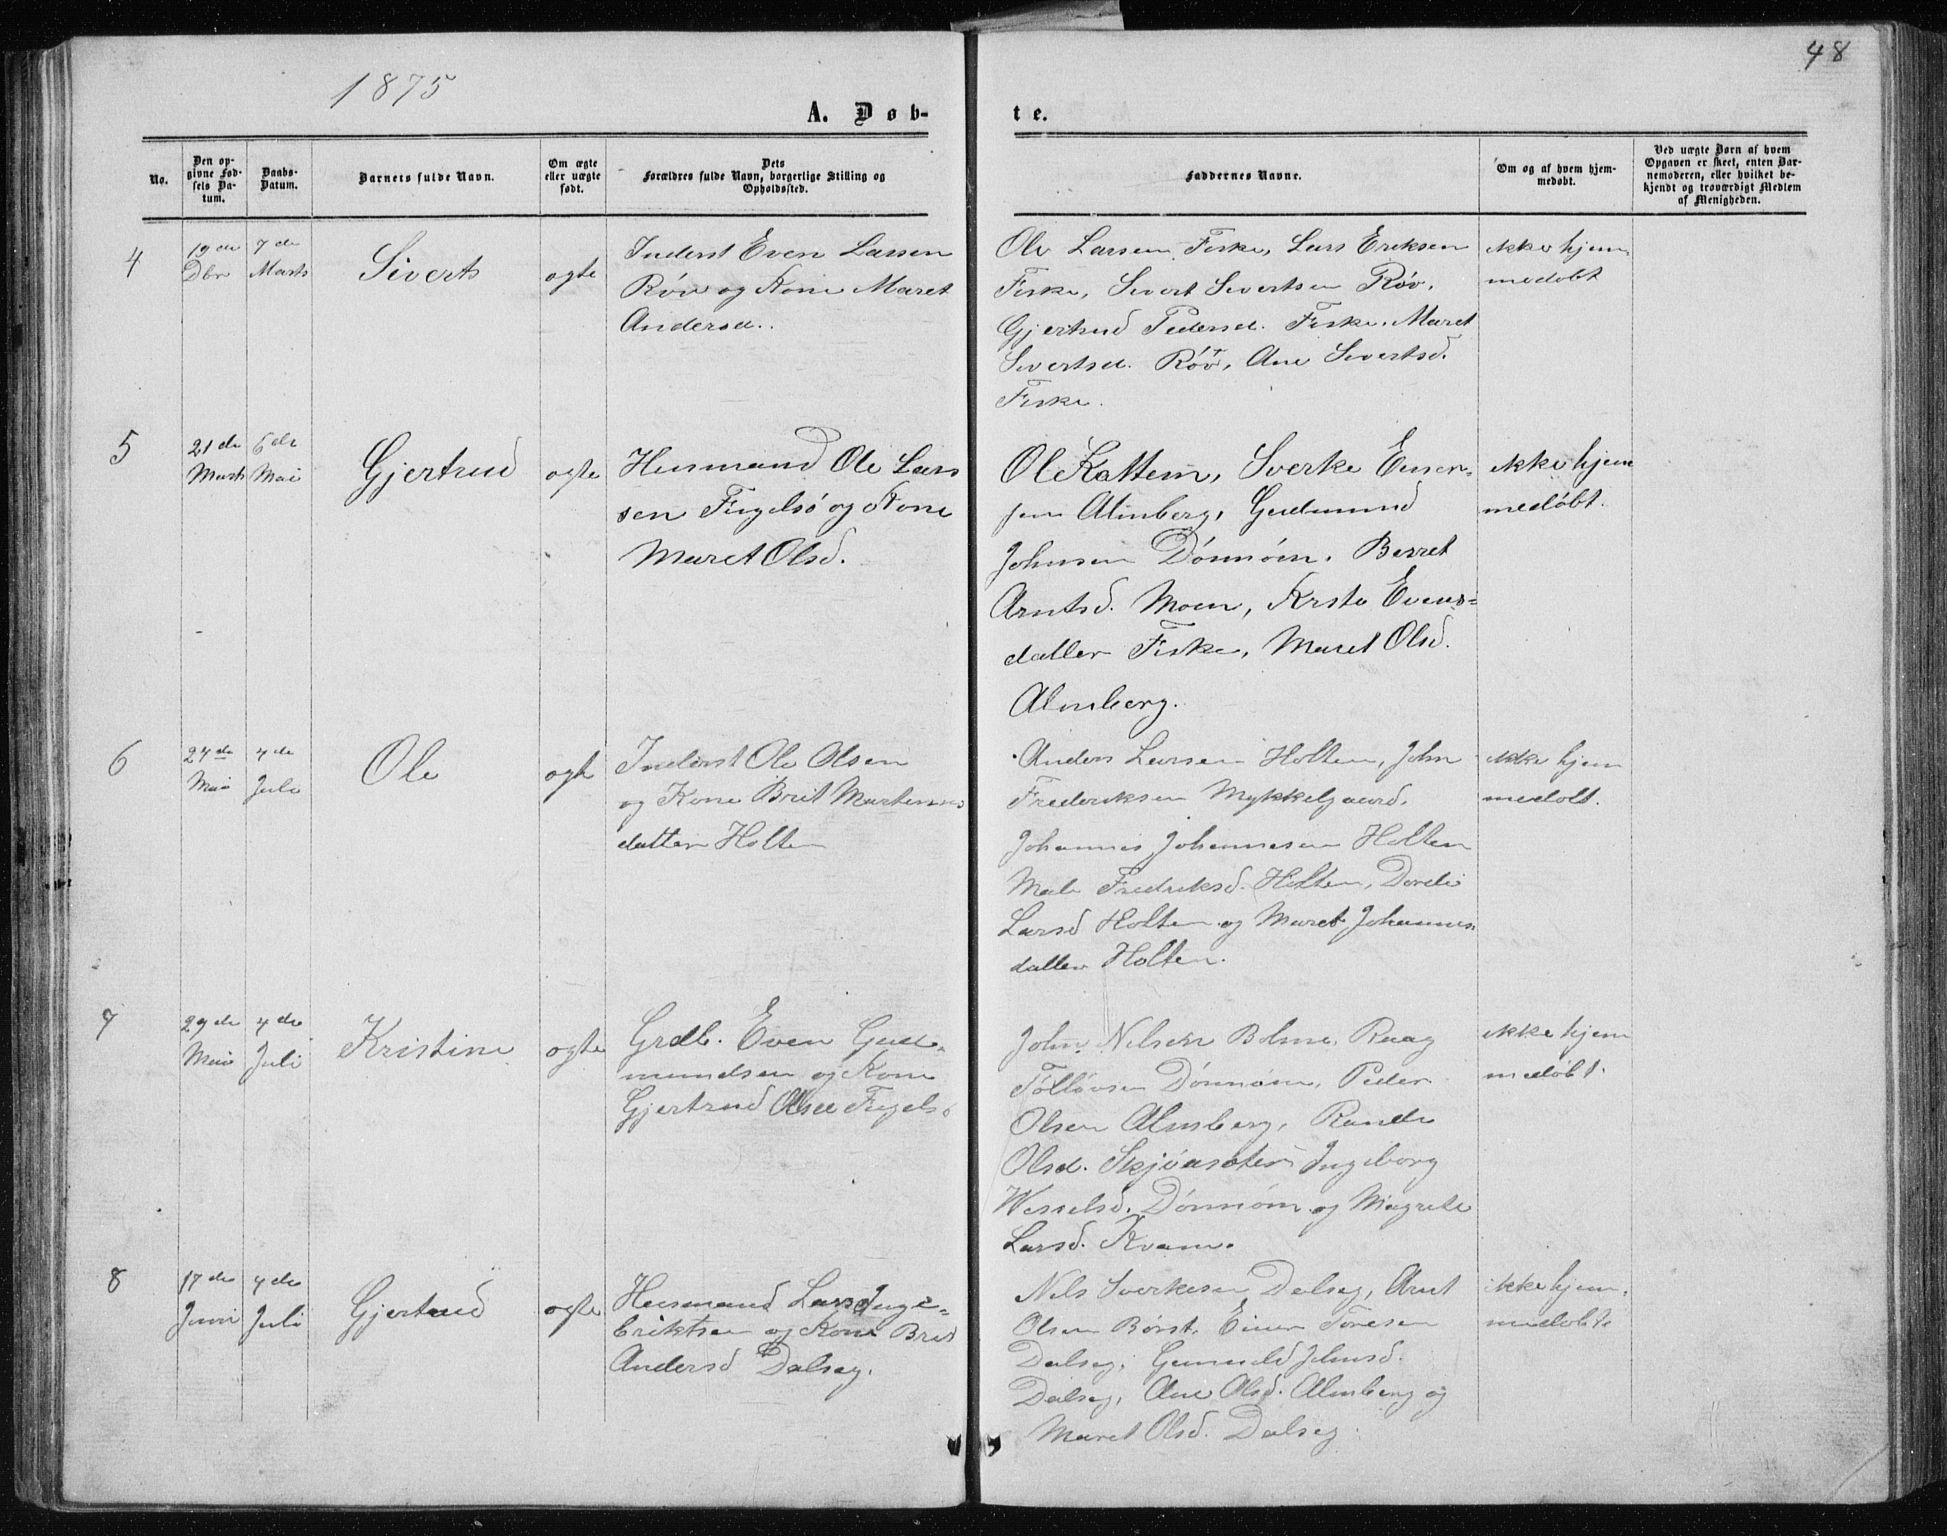 1875
48
A. Døb-
te.
No.
Den op-
givne Fød-
sels Da-
tum.
Daabs-
Datum.
Barnets fulde Navn.
Om ægte
eller uægte
født.
Dets
Forældres fulde Navn, borgerlige Stilling og
Opholdssted.
Faddernes Navne.
Om og af hvem hjem-
medøbt.
Ved uægte Børn af hvem
Opgaven er skeet, enten Bar-
nemoderen, eller hvilket be-
kjendt og troværdigt Medlem
af Menigheden.
4
19de
Dbr
7de
Marts
Sivert
ægte
Inderst Even Larsen
Røv og Kone Maret
Andersd.
Ole Larsen Fiske, Lars Eriksen
Fiske, Sivert Sivertsen Røv.
Gjertrud Pedersd. Fiske. Maret
Sivertsd. Røv, Ane Sivertsd.
Fiske.
ikke hjem
medøbt
5
21de
Marts
6de
Mai
Gjertrud
ægte
Husmand Ole Lars
sen Fugelsø og Kone
Maret Olsd.
Ole Kattem, Sverke Einer-
sen Almberg, Gudmund
Johnsen Dønnøm. Berret
Arntsd. Moen, Kirsti Evens-
datter Fiske, Maret Olsd.
Almberg.
ikke hjem
medøbt.
6
24de
Mai
4de
Juli
Ole
ægte
Inderst Ole Olsen
og Kone Brit Martinus
datter Holten
Anders Larsen Holten, John
Frederiksen Mykkelgaard.
Johannes Johannesen Holten
Mali Fredriksd. Holten, Dordi
Larsd Holten og Maret Johannes
datter Holten.
ikke hjem
medøbt.
7
29de
Mai
4de
Juli
Kristine
ægte
Grdb. Even Gud-
mundsen og Kone
Gjertrud Olsd Fugelsø
John Nilsen Bolme. Raag
Tølløvsen Dønnøm, Peder
Olsen Almberg, Randi
Olsd. Skjøasæter Ingeborg
Wesselsd. Dønnøm og Magrete
Larsd. Kvam.
ikke hjem
medøbt.
8
17de
Juni
4de
Juli
Gjertrud
ægte
Husmand Lars Inge-
briktsen og Kone Brit
Andersd Dalseg.
Nils Sverkesen Dalseg, Arnt
Olsen Børst, Einer Toresen
Dalseg. Gunnild Johnsd.
Dalseg, Ane Olsd. Almberg og
Maret Olsd. Dalseg
ikke hjem.
medøbt